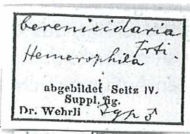 berenicidaria
Hemerophila Trti.
abgebildet Seitz IV.
Suppl. fig.
Dr. Wehrli Typ ♂